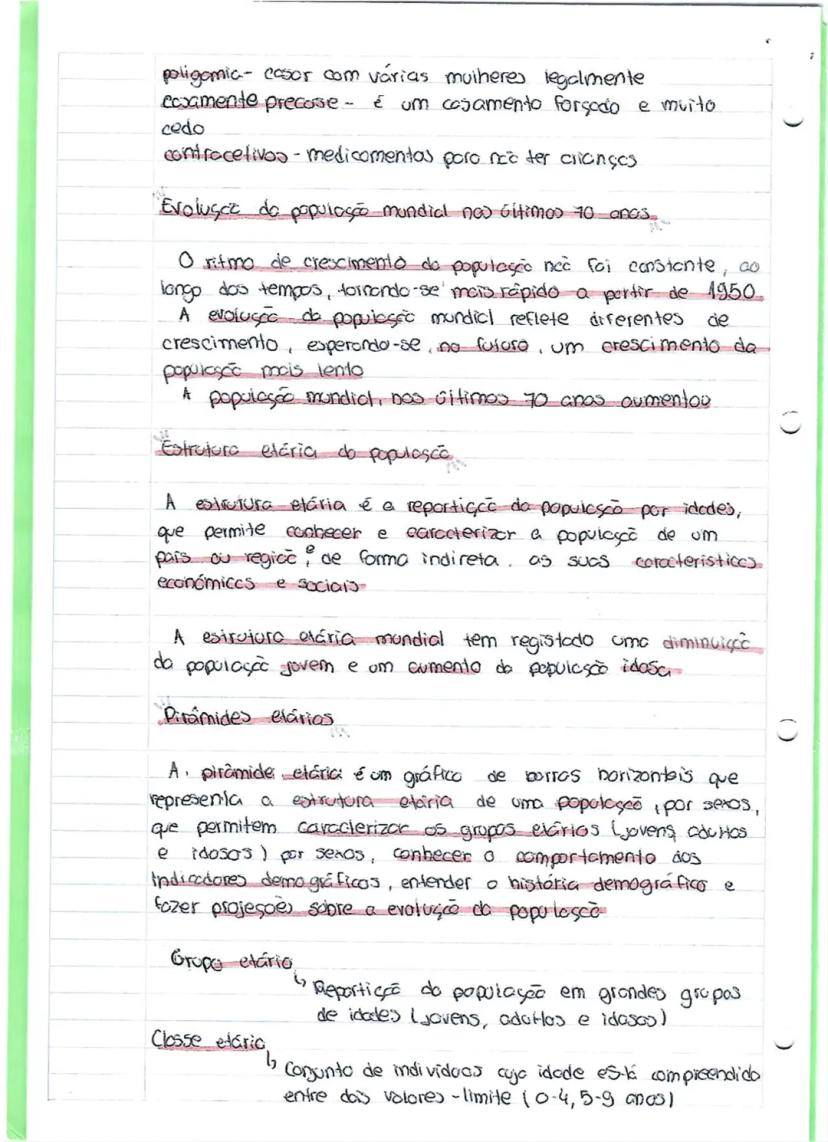 poligamia - casar com várias mulheres legalmente
casamente precosse - É um casamento forçado e muito
cedo
contracetivos - medicamentos para não ter crianças
Evolução da população mundial nos últimos 70 anos
O ritmo de crescimento da população não foi constante, ao
longo dos tempos, tornando-se mais rápido a partir de 1950.
A evolução da população mundial reflete diferentes de
crescimento, esperando-se, no futuro, um crescimento da
população mais lento
A população mundial, nos últimos 70 anos aumentou
Estrutura etária da população
A estrutura etária é a repartição da população por idades,
que permite conhecer e caracterizar a população de um
país ou região e, de forma indireta, as suas características
económicas e sociais
A estrutura etária mundial tem registado uma diminuição
da população jovem e um aumento da população idosa
Pirâmides etários
A pirâmide etária é um gráfico de barras horizontais que
representa a estrutura etária de uma população, por sexos,
que permitem caracterizar os grupos etários (jovens, adultos
e idosos) por sexos, conhecer o comportamento dos
indicadores demográficos, entender o história demográfico e
fazer projeções sobre a evolução da população
Grupo etário
↳ Repartição da população em grandes grupos
de idades (jovens, adultos e idosos)
Classe etária
↳ Conjunto de indivíduos cuja idade está compreendido
entre dois valores-limite (0-4, 5-9 anos)